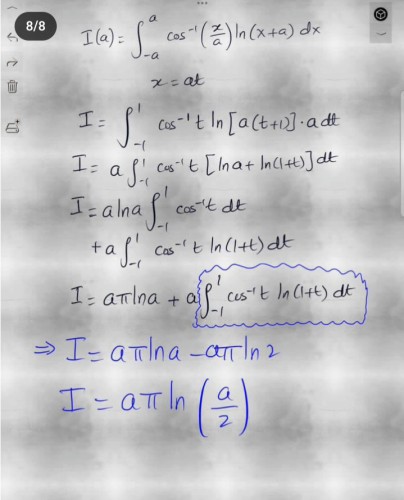 8/8
I(a) = ∫_{-a}^{a} cos⁻¹(x/a) ln(x+a) dx
x = at
I = ∫_{-1}^{1} cos⁻¹t ln[a(t+1)]·a dt
I = a ∫_{-1}^{1} cos⁻¹t [ln a + ln(1+t)] dt
I = a ln a ∫_{-1}^{1} cos⁻¹t dt
+ a ∫_{-1}^{1} cos⁻¹t ln(1+t) dt
I = aπ ln a + a ∫_{-1}^{1} cos⁻¹t ln(1+t) dt
⇒ I = aπ ln a - aπ ln 2
I = aπ ln(a/2)